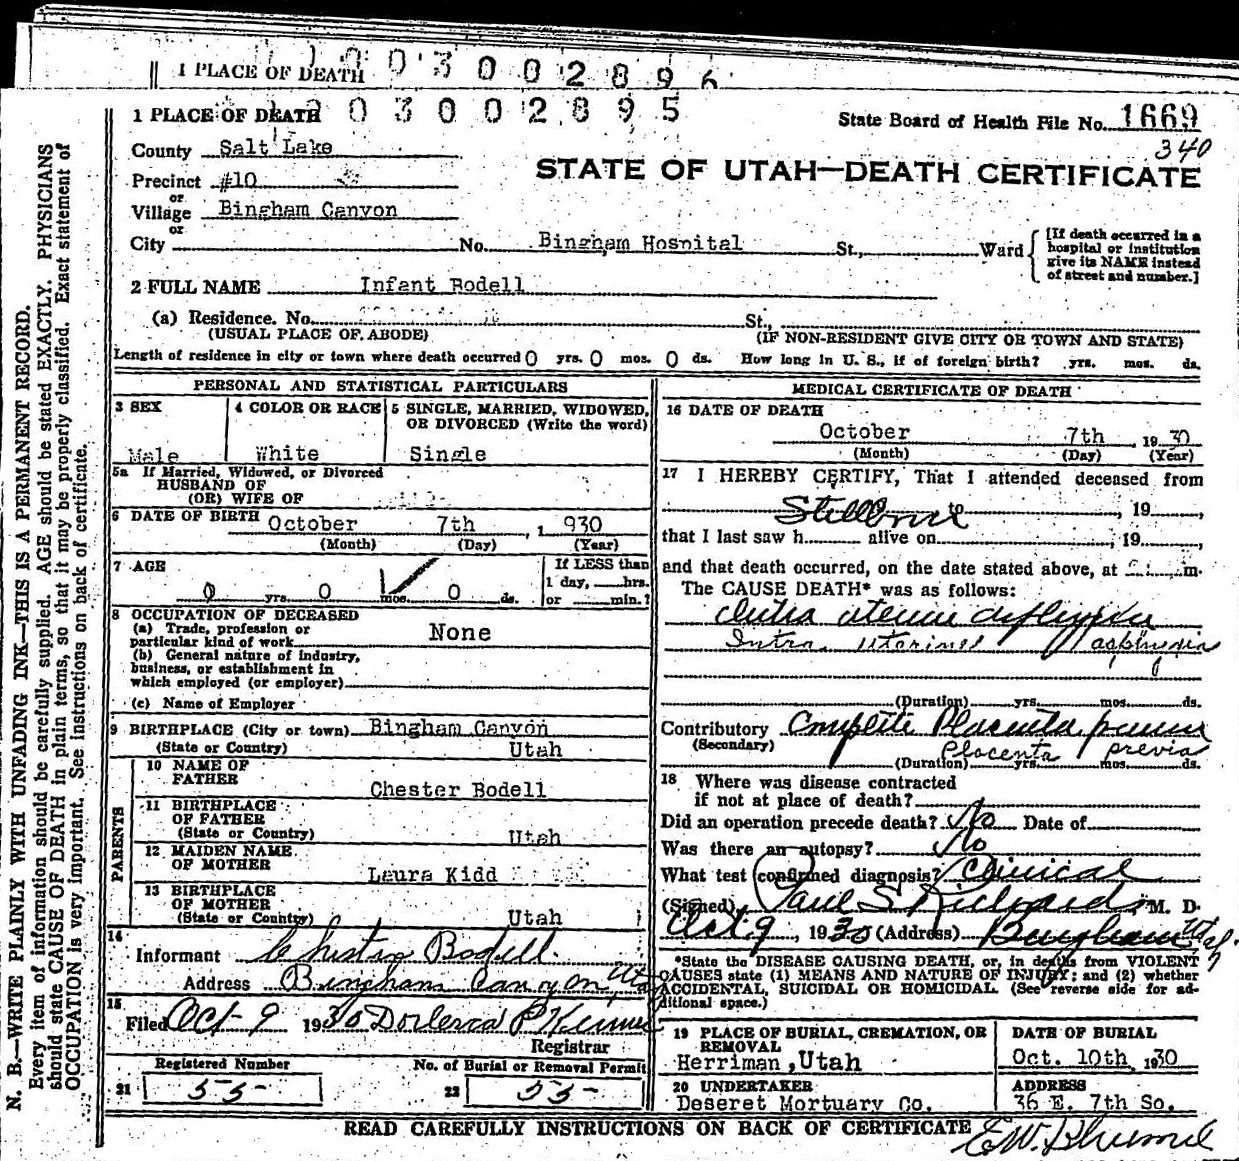 1 PLACE OF DEATH 0 3 0 0 2 8 9 6
1 PLACE OF DEATH 0 3 0 0 2 8 9 5
State Board of Health File No. 1669
340
County Salt Lake
STATE OF UTAH—DEATH CERTIFICATE
Precinct #10
or
Village Bingham Canyon
or
City No. Bingham Hospital St., Ward
[If death occurred in a
hospital or institution
give its NAME instead
of street and number.]
2 FULL NAME Infant Bodell
(a) Residence. No. St.,
(USUAL PLACE OF ABODE) (IF NON-RESIDENT GIVE CITY OR TOWN AND STATE)
Length of residence in city or town where death occurred 0 yrs. 0 mos. 0 ds. How long in U. S., if of foreign birth? yrs. mos. ds.
PERSONAL AND STATISTICAL PARTICULARS
3 SEX
Male
4 COLOR OR RACE
White
5 SINGLE, MARRIED, WIDOWED,
OR DIVORCED (Write the word)
Single
5a If Married, Widowed, or Divorced
HUSBAND OF
(OR) WIFE OF
6 DATE OF BIRTH October 7th , 1 930
(Month) (Day) (Year)
7 AGE
0 yrs. 0 mos. 0 ds.
If LESS than
1 day, hrs.
or min.?
8 OCCUPATION OF DECEASED
(a) Trade, profession or
particular kind of work None
(b) General nature of industry,
business, or establishment in
which employed (or employer)
(c) Name of Employer
9 BIRTHPLACE (City or town) Bingham Canyon
(State or Country) Utah
PARENTS
10 NAME OF
FATHER Chester Bodell
11 BIRTHPLACE
OF FATHER
(State or Country) Utah
12 MAIDEN NAME
OF MOTHER Laura Kidd
13 BIRTHPLACE
OF MOTHER
(State or Country) Utah
14
Informant Bodell
Address Bingham Canyon, Utah
15
Filed Oct 9 1930
Registrar
Registered Number No. of Burial or Removal Permit
21 55- 22 55-
MEDICAL CERTIFICATE OF DEATH
16 DATE OF DEATH
October 7th , 19 30
(Month) (Day) (Year)
17 I HEREBY CERTIFY, That I attended deceased from
Stillborn to , 19 ,
that I last saw h alive on , 19 ,
and that death occurred, on the date stated above, at m.
The CAUSE DEATH* was as follows:
Intra uterine asphyxia
Intra uterine asphyxia
(Duration) yrs. mos. ds.
Contributory Complete Placenta previa
(Secondary) Placenta previa
(Duration) yrs. mos. ds.
18 Where was disease contracted
if not at place of death?
Did an operation precede death? No Date of
Was there an autopsy? No
What test confirmed diagnosis? Clinical
(Signed) Paul S Richards, M. D.
Oct 9 , 1930 (Address) Bingham Utah
*State the DISEASE CAUSING DEATH, or, in deaths from VIOLENT
CAUSES state (1) MEANS AND NATURE OF INJURY; and (2) whether
ACCIDENTAL, SUICIDAL OR HOMICIDAL. (See reverse side for ad-
ditional space.)
19 PLACE OF BURIAL, CREMATION, OR
REMOVAL
Herriman ,Utah
DATE OF BURIAL
Oct. 10th, 1930
20 UNDERTAKER
Deseret Mortuary Co.
ADDRESS
36 E. 7th So.
READ CAREFULLY INSTRUCTIONS ON BACK OF CERTIFICATE
N. B.—WRITE PLAINLY WITH UNFADING INK—THIS IS A PERMANENT RECORD.
Every item of information should be carefully supplied. AGE should be stated EXACTLY. PHYSICIANS
should state CAUSE OF DEATH in plain terms, so that it may be properly classified. Exact statement of
OCCUPATION is very important. See instructions on back of certificate.